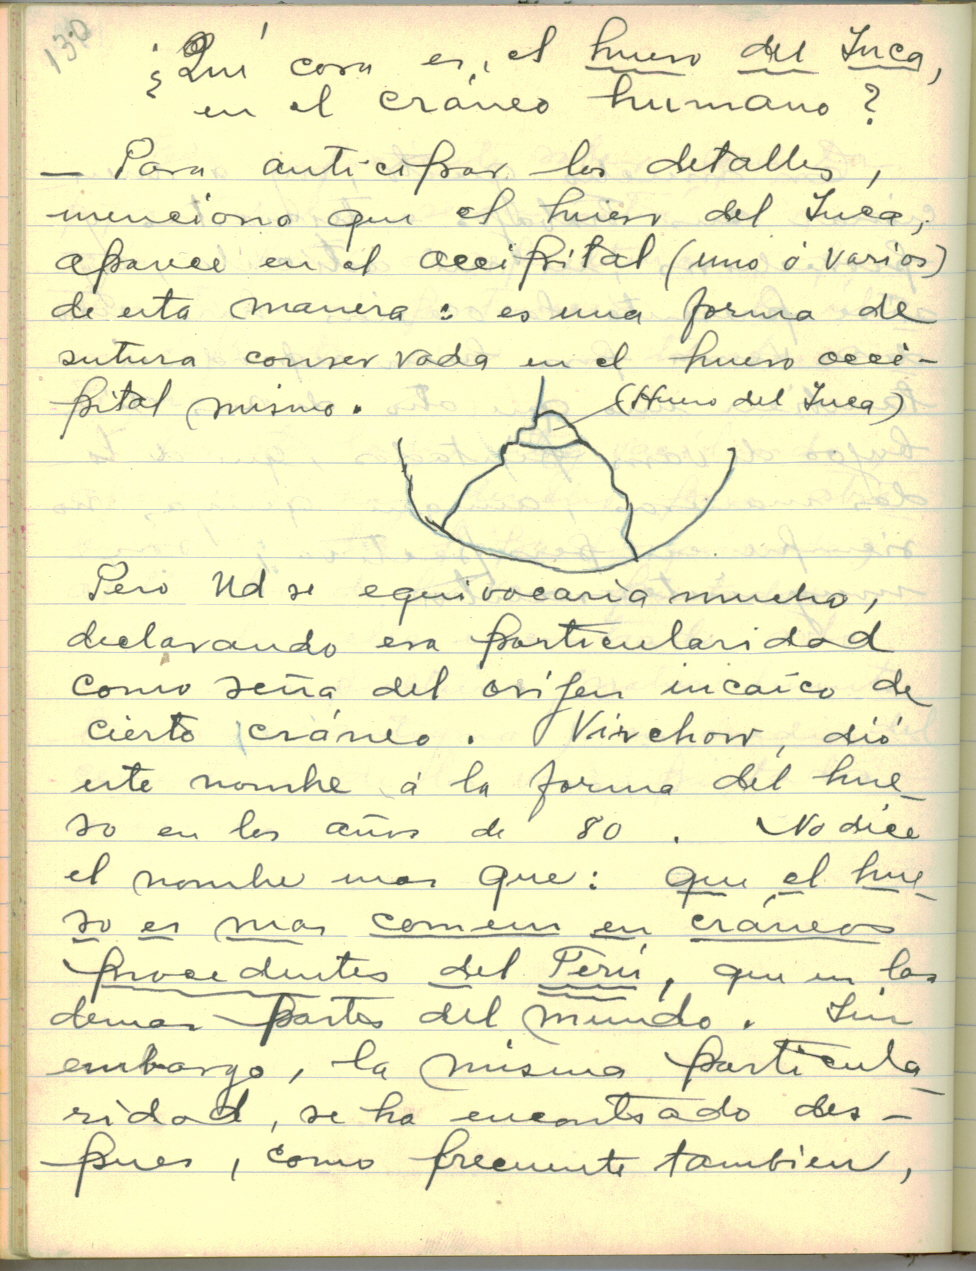 130
¿Qué cosa es, el hueso del Inca,
en el cráneo humano?
— Para anticipar los detalles,
menciono que el hueso del Inca,
aparece en el occipital (uno ó varios)
de esta manera: es una forma de
sutura conservada en el hueso occi-
pital mismo.
(Hueso del Inca)
Pero Ud se equivocaría mucho,
declarando esa particularidad
como seña del orígen incaíco de
cierto cráneo. Virchow, dió
este nombre, á la forma del hue-
so en los años de 80. No dice
el nombre mas que: que el hue-
so es mas comun en cráneos
procedentes del Perú, que en las
demas partes del mundo. Sin
embargo, la misma particula-
ridad, se ha encontrado des-
pues, como frecuente tambien,